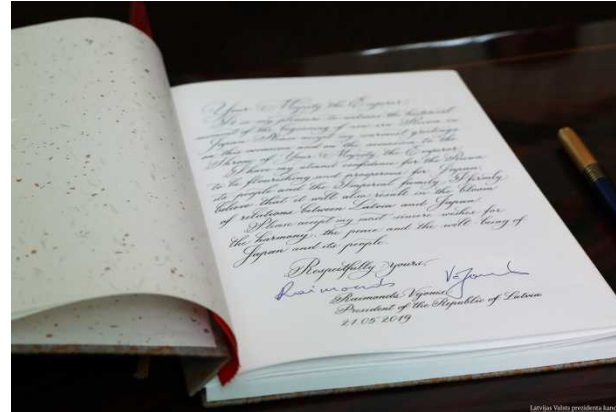 Your Majesty the Emperor,
It is my pleasure to witness the historical
moment of the beginning of new era Reiwa in
Japan. Please accept my warmest greetings
on this occasion and on the accession to the
Throne of Your Majesty the Emperor.
I have my utmost confidence for the Reiwa
to be flourishing and prosperous for Japan,
its people and the Imperial family. I firmly
believe that it will also result in the bloom
of relations between Latvia and Japan.
Please accept my most sincere wishes for
the harmony, the peace and the well being of
Japan and its people.
Respectfully yours,
Raimonds Vējonis
Raimonds Vējonis
President of the Republic of Latvia
21.05.2019
Latvijas Valsts prezidenta